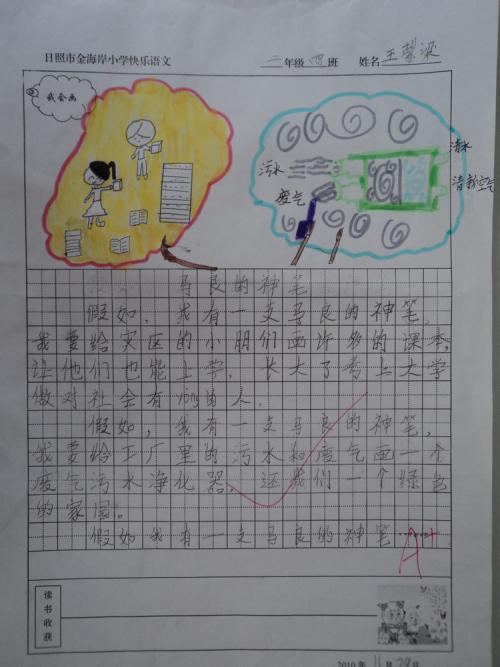 日照市金海岸小学快乐语文 二年级四班 姓名王馨梁
我会画
污水
废气
清水
清新空气
马良的神笔
假如，我有一支马良的神笔，
我要给灾区的小朋们画许多的课本，
让他们也能上学，长大了考上大学
做对社会有yòng的人.
假如，我有一支马良的神笔，
我要给工厂里的污水和废气画一个
废气污水净化器，还我们一个绿色
的家园。
假如我有一支马良的神笔……
A+
读书收获
2010年11月